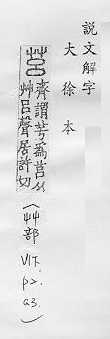 說文解字
大徐本
莒
齊謂芌為莒从
艸呂聲居許切
(艸部
p2.
a3.)